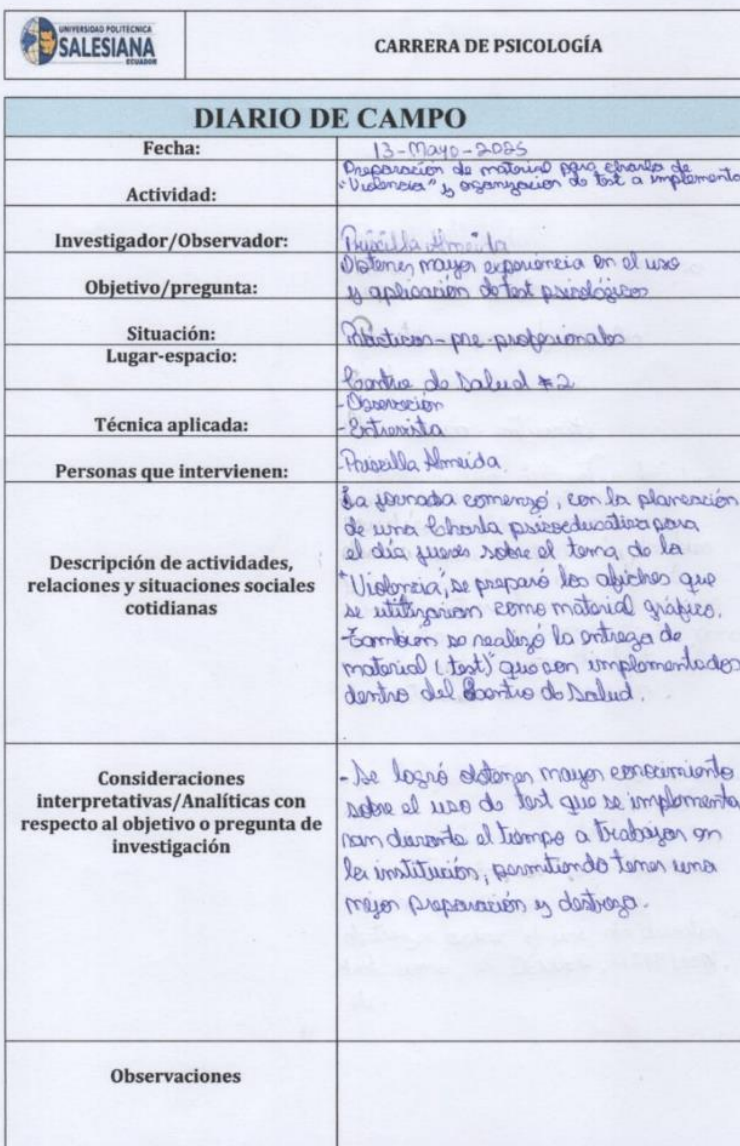 UNIVERSIDAD POLITÉCNICA
SALESIANA
ECUADOR
CARRERA DE PSICOLOGÍA
DIARIO DE CAMPO
Fecha:
13-Mayo-2025
Actividad:
Preparación de material para charla de
"Violencia" y organizacion de test a implementa
Investigador/Observador:
Priscilla Almeida
Objetivo/pregunta:
Obtener mayor experiencia en el uso
y aplicación de test psicológicos
Situación:
Prácticas-pre-profesionales
Lugar-espacio:
Centro de Salud #2
Técnica aplicada:
-Observación
-Entrevista
Personas que intervienen:
-Priscilla Almeida.
Descripción de actividades,
relaciones y situaciones sociales
cotidianas
La jornada comenzó, con la planeación
de una Charla psicoeducativa para
el día jueves sobre el tema de la
"Violencia", se preparó los afiches que
se utilizarian como material gráfico.
Tambien se realizó la entrega de
material (test) que son implementados
dentro del Centro de Salud.
Consideraciones
interpretativas/Analíticas con
respecto al objetivo o pregunta de
investigación
- Se logró obtener mayor conocimiento
sobre el uso de test que se implementa
ran durante el tiempo a trabajar en
la institución, permitiendo tener una
mejor preparación y destreza.
Observaciones